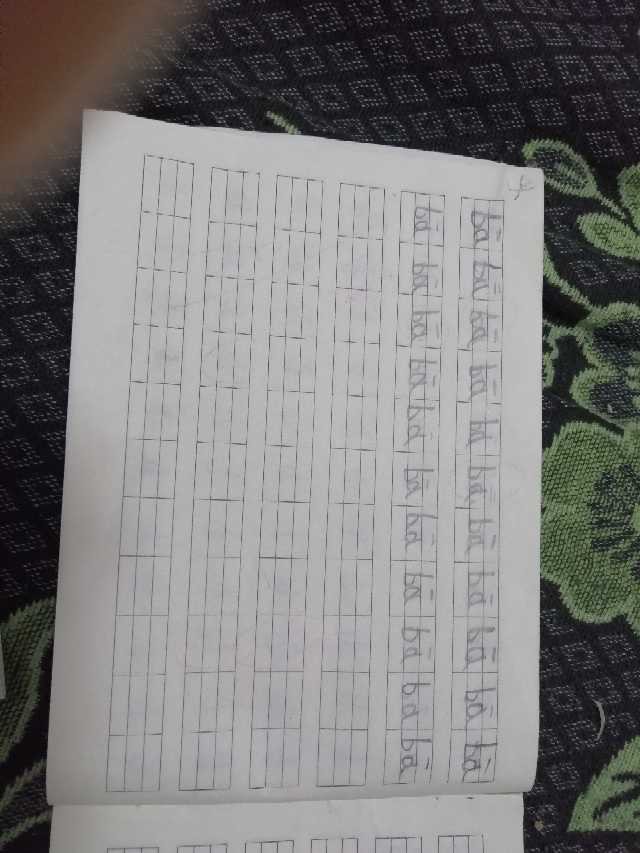 bā bā bā bā bā bā bā bā bā bā bā
bā bā bā bā bā bā bā bā bā bā bā